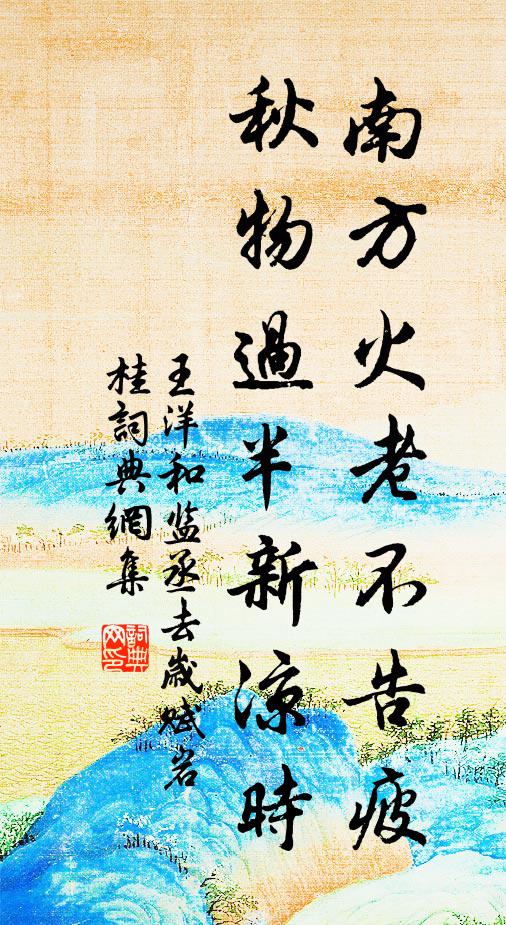 南方火老不告疲
秋物過半新涼時
王洋和监丞去歲賦岩
桂詞典網集
詞典
网印